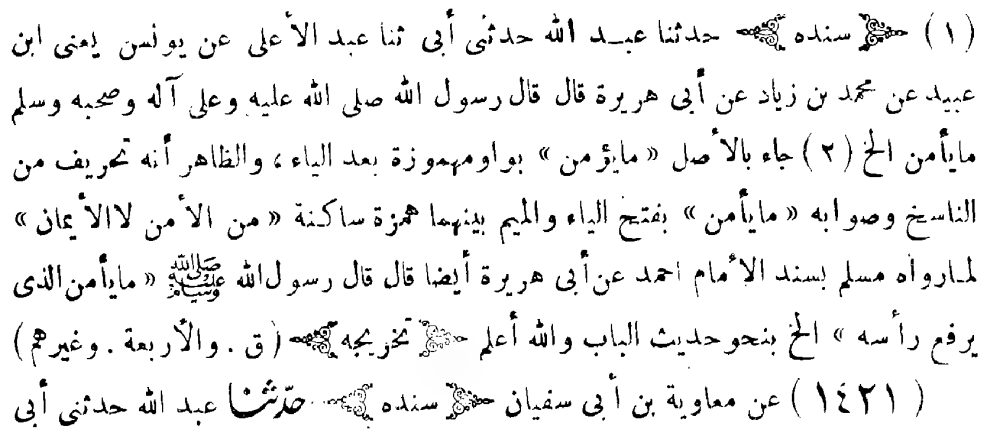 (١) ﴿ سنده ﴾ حدثنا عبد الله حدثنى أبى ثنا عبد الأعلى عن يونس يعنى ابن
عبيد عن محمد بن زياد عن أبى هريرة قال قال رسول الله صلى الله عليه وعلى آله وصحبه وسلم
مايأمن الخ (٢) جاء بالأصل « مايؤمن » بواومهموزة بعد الياء ، والظاهر أنه تحريف من
الناسخ وصوابه « مايأمن » بفتح الياء والميم بينهما همزة ساكنة « من الأمن لاالأيمان »
لمارواه مسلم بسند الأمام احمد عن أبى هريرة أيضا قال قال رسول الله ﷺ « مايأمن الذى
يرفع رأسه » الخ بنحوحديث الباب والله أعلم ﴿ تخريجه ﴾ (ق . والأربعة . وغيرهم)
(١٤٢١) عن معاوية بن أبى سفيان ﴿ سنده ﴾ حدّثنا عبد الله حدثنى أبى